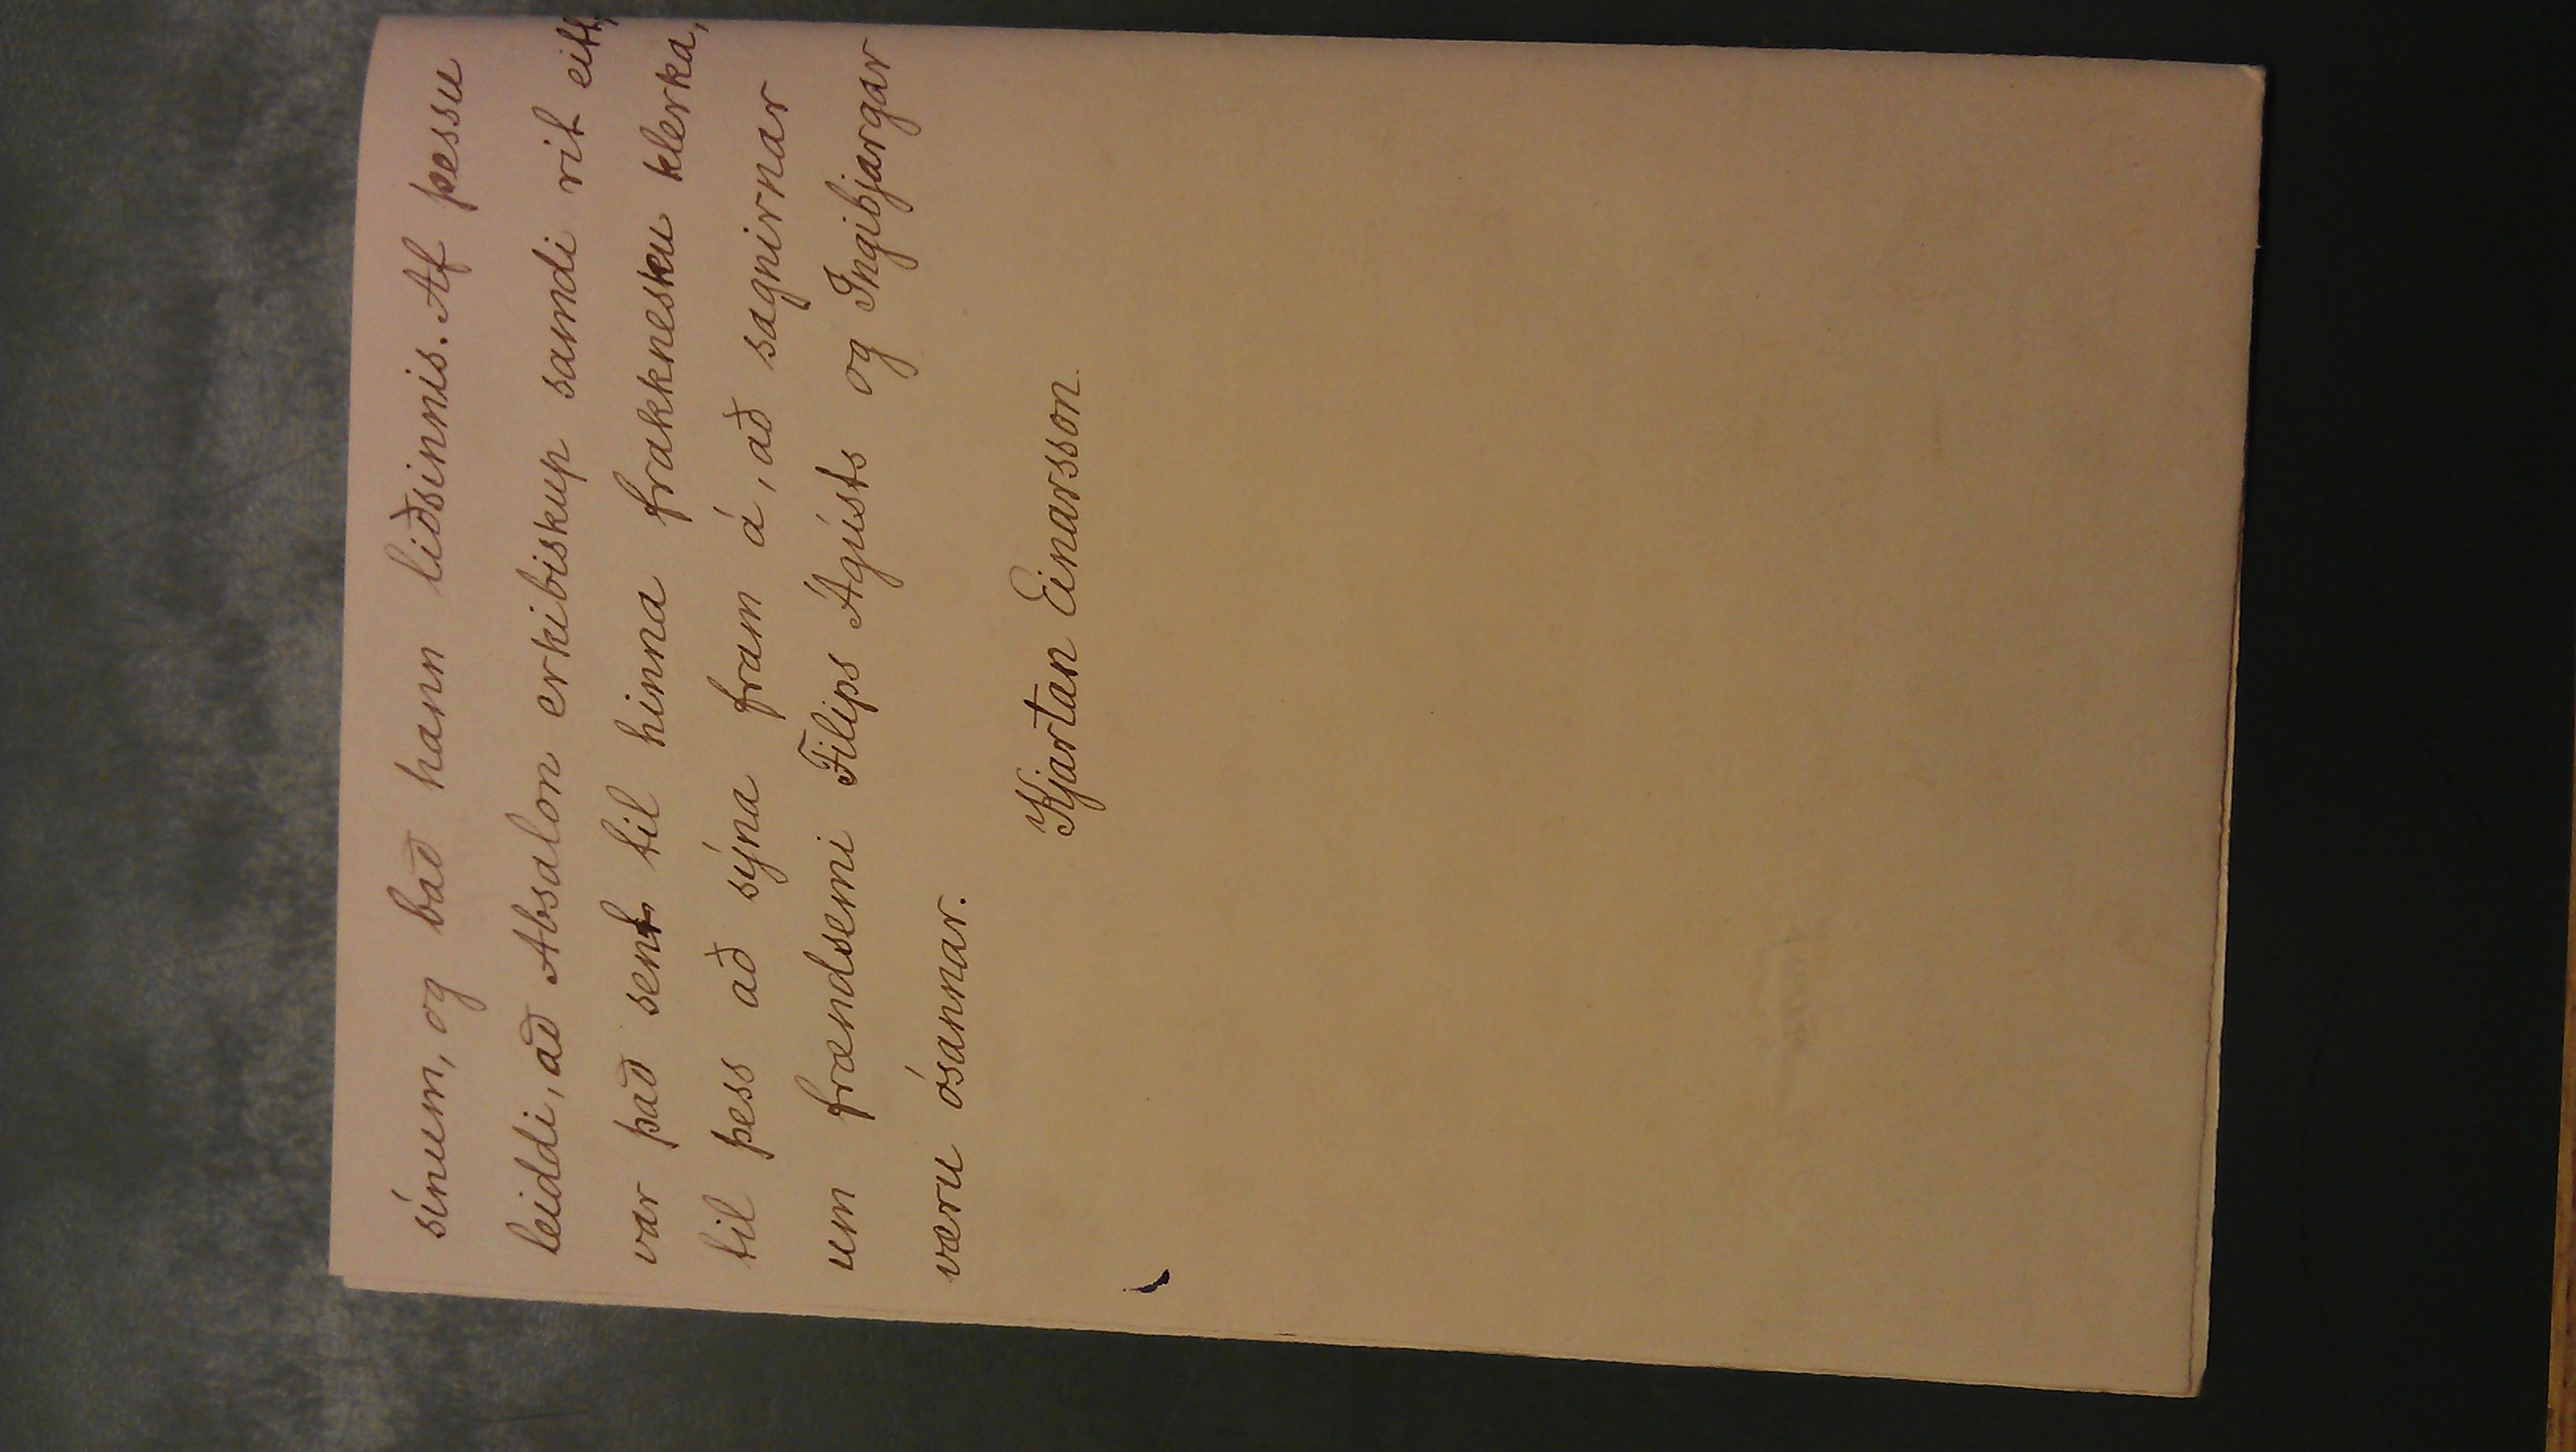 sínum, og bað hann liðsinnis. Af þessu
leiddi, að Absalon erkibiskup samdi rit eitt,
var það sent til hinna frakknesku klerka,
til þess að sýna fram á, að sagnirnar
um frændsemi Filips Ágústs og Ingibjargar
væru ósannar.
Kjartan Einarsson.